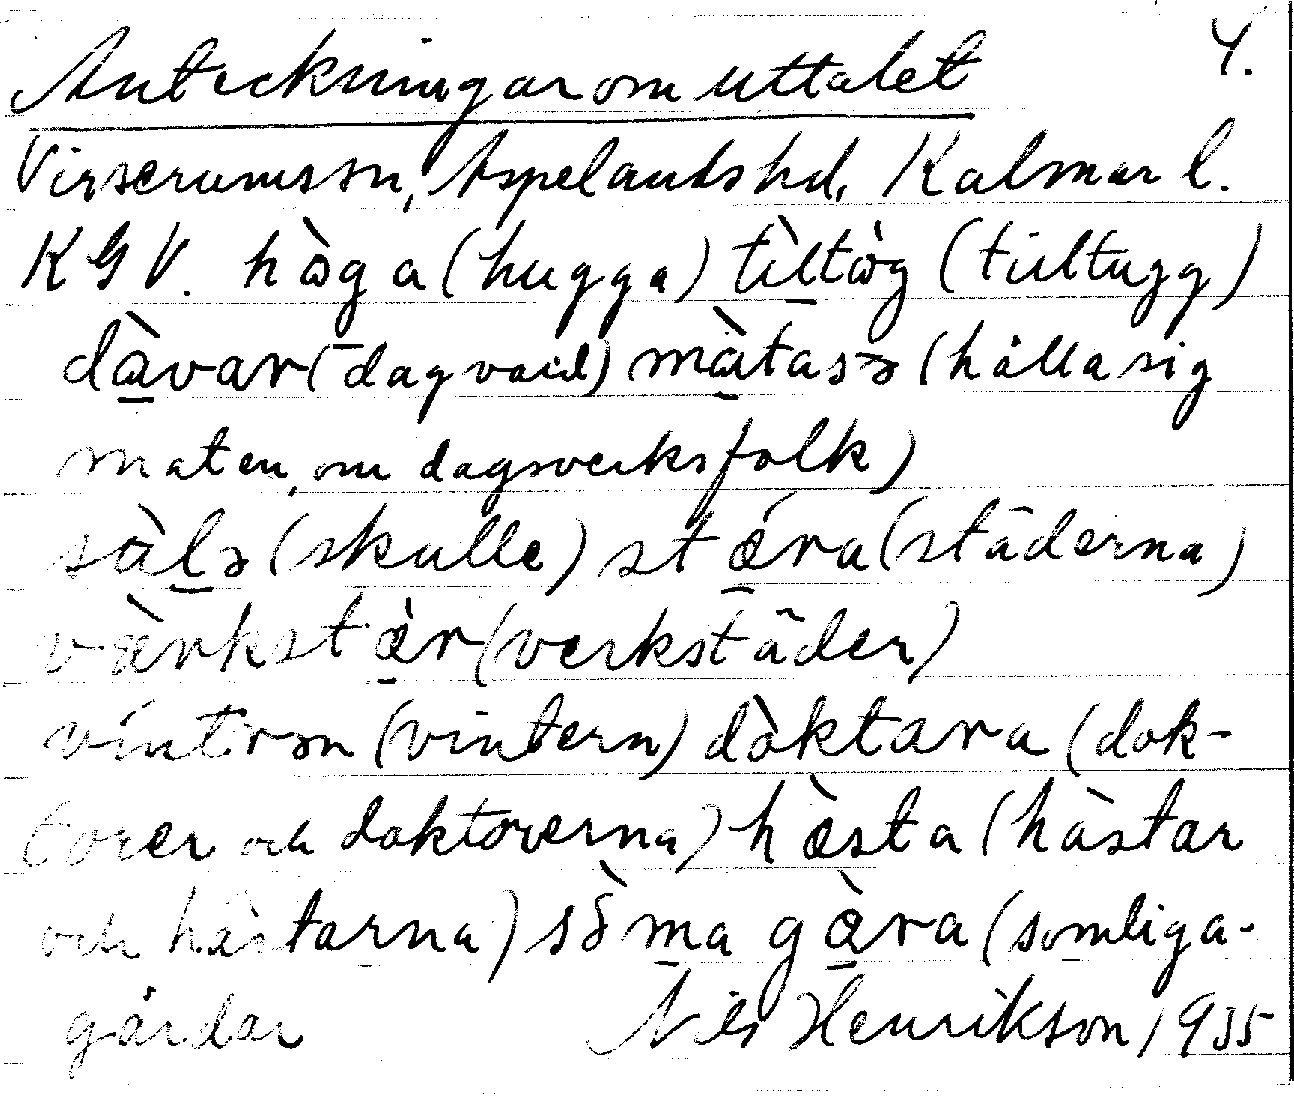 Anteckningar om uttalet 4.
Virserums sn, Aspelands hd, Kalmar l.
KGV. hòga (hugga) tìltòg (tilltugg)
dàvar (dagvard) màtasə (hålla sig
maten, om dagsverksfolk)
sàlə (skulle) stǽra (städerna)
værkstær (verkstäder)
víntrən (vintern) dòktara (dok-
torer och doktorerna) hæsta (hästar
och hästarna) sòma gàra (somliga-
gårdar Nils Henrikson 1935